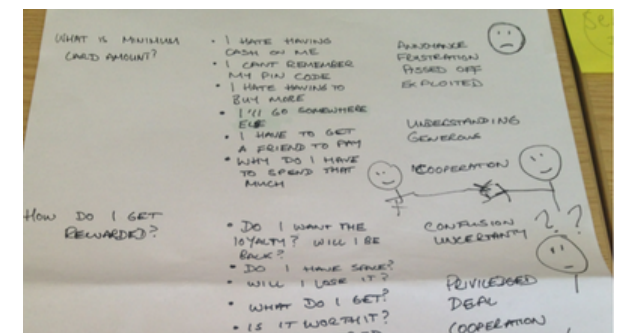 WHAT IS MINIMUM
CARD AMOUNT?
• I HATE HAVING
CASH ON ME
• I CANT REMEMBER
MY PIN CODE
• I HATE HAVING TO
BUY MORE
• I'LL GO SOMEWHERE
ELSE
• I HAVE TO GET
A FRIEND TO PAY
• WHY DO I HAVE
TO SPEND THAT
MUCH
ANNOYANCE
FRUSTRATION
PISSED OFF
EXPLOITED
UNDERSTANDING
GENEROUS
COOPERATION
HOW DO I GET
REWARDED?
• DO I WANT THE
LOYALTY? WILL I BE
BACK?
• DO I HAVE SPACE?
• WILL I LOSE IT?
• WHAT DO I GET?
• IS IT WORTH IT?
CONFUSION
UNCERTANTY
? ?
PRIVILEDGED
DEAL
COOPERATION